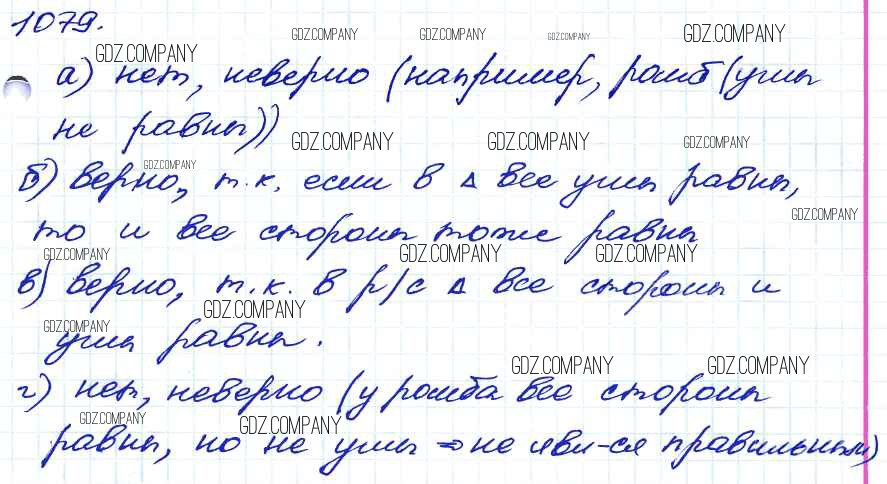 1079.
GDZ.COMPANY GDZ.COMPANY GDZ.COMPANY GDZ.COMPANY GDZ.COMPANY
а) нет, неверно (например, ромб (углы
не равны))
GDZ.COMPANY GDZ.COMPANY GDZ.COMPANY
GDZ.COMPANY
б) верно, т.к. если в △ все углы равны,
GDZ.COMPANY
то и все стороны тоже равны
GDZ.COMPANY GDZ.COMPANY GDZ.COMPANY
в) верно, т.к. в р/с △ все стороны и
GDZ.COMPANY
GDZ.COMPANY
углы равны.
GDZ.COMPANY GDZ.COMPANY
г) нет, неверно (у ромба все стороны
GDZ.COMPANY GDZ.COMPANY
равны, но не углы ⇒ не явл-ся правильным)